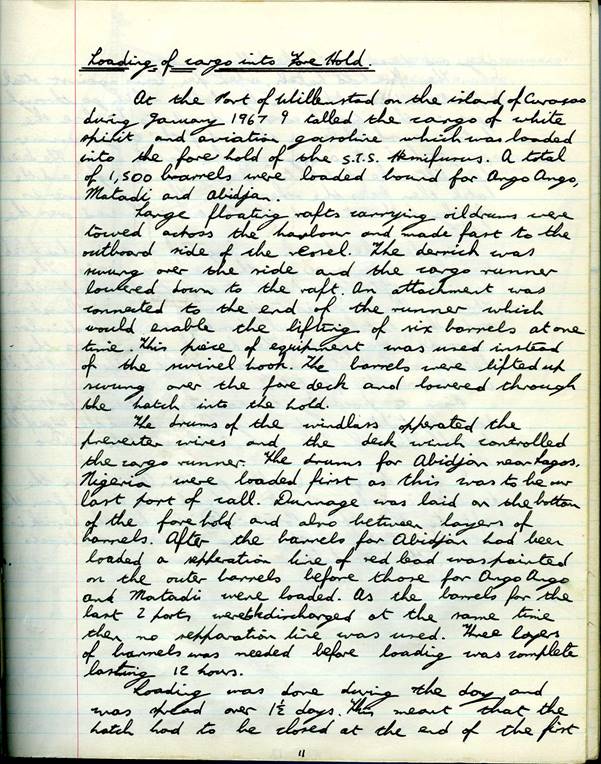 Loading of cargo into Fore Hold.
At the Port of Willemstad on the island of Curacao
during January 1967 I tallied the cargo of white
spirit and aviation gasoline which was loaded
into the fore hold of the S.T.S. Hemifusus. A total
of 1,500 barrels were loaded bound for Ango Ango,
Matadi and Abidjan.
Large floating rafts carrying oildrums were
towed across the harbour and made fast to the
outboard side of the vessel. The derrick was
swung over the side and the cargo runner
lowered down to the raft. An attachment was
connected to the end of the runner which
would enable the lifting of six barrels at one
time. This piece of equipment was used instead
of the swivel hook. The barrels were lifted up
swung over the fore deck and lowered through
the hatch into the hold.
The drums of the windlass operated the
preventer wires and the deck winch controlled
the cargo runner. The drums for Abidjan near Lagos,
Nigeria were loaded first as this was to be our
last port of call. Dunnage was laid on the bottom
of the fore hold and also between layers of
barrels. After the barrels for Abidjan had been
loaded a sepperation line of red lead was painted
on the outer barrels before those for Ango Ango
and Matadi were loaded. As the barrels for the
last 2 ports were discharged at the same time
then no sepparation line was used. Three layers
of barrels was needed before loading was complete
lasting 12 hours.
Loading was done during the day and
was spread over 1½ days. This meant that the
hatch had to be closed at the end of the first
11